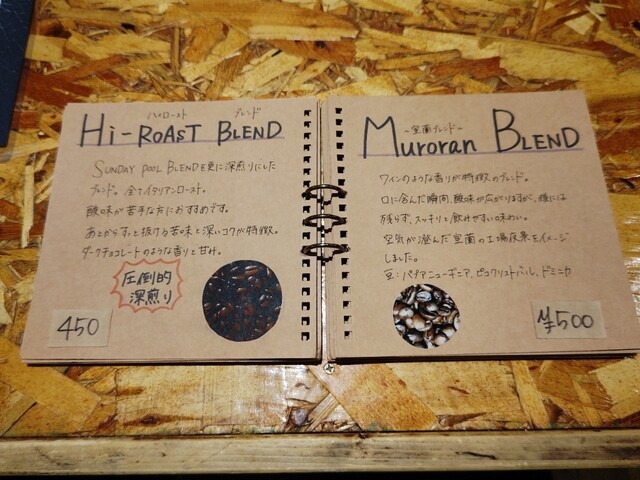 ハイロースト ブレンド
Hi-ROAST BLEND
SUNDAY POOL BLENDを更に深煎りにした
ブレンド。全てイタリアンロースト。
酸味が苦手な方におすすめです。
あとからすっと抜ける苦味と深いコクが特徴。
ダークチョコレートのような香りと甘み。
圧倒的
深煎り
450
-室蘭ブレンド-
Muroran BLEND
ワインのような香りが特徴のブレンド。
口に含んだ瞬間、酸味が広がりますが、後には
残らず、スッキリと飲みやすい味わい。
空気が澄んだ室蘭の工場夜景をイメージ
しました。
豆:パプアニューギニア,ピコクリストバル,ドミニカ
¥500